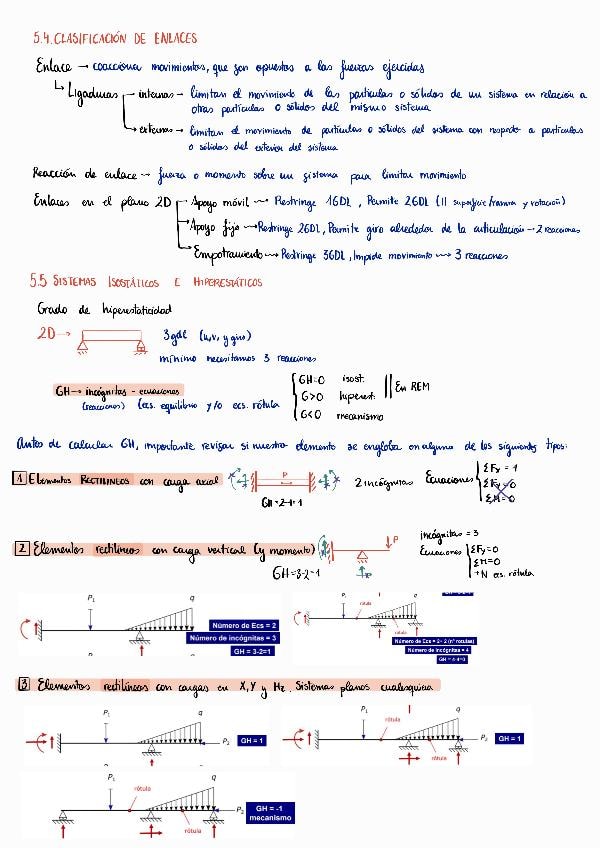 5.4. CLASIFICACIÓN DE ENLACES
Enlace → coaccionar movimientos, que son opuestos a las fuerzas ejercidas
↳ Ligaduras — internas → limitan el movimiento de las partículas o sólidos de un sistema en relación a
otras partículas o sólidos del mismo sistema
externas → limitan el movimiento de partículas o sólidos del sistema con respecto a partículas
o sólidos del exterior del sistema
Reacción de enlace → fuerza o momento sobre un sistema para limitar movimiento
Enlaces en el plano 2D — Apoyo móvil → Restringe 1GDL, Permite 2GDL (II superficie/ranura y rotación)
Apoyo fijo → Restringe 2GDL, Permite giro alrededor de la articulación → 2 reacciones
Empotramiento → Restringe 3GDL, Impide movimiento → 3 reacciones
5.5 SISTEMAS ISOSTÁTICOS E HIPERESTÁTICOS
Grado de hiperestaticidad
2D → 3gdl (u,v, y giro)
mínimo necesitamos 3 reacciones
GH → incógnitas - ecuaciones
(reacciones) (ecs. equilibrio y/o ecs. rótula
GH=0 isost.
G>0 hiperest.
G<0 mecanismo
En REM
Antes de calcular GH, importante revisar si nuestro elemento se engloba en alguno de los siguientes tipos:
1 Elementos RECTILINEOS con carga axial
P
GH=2-1=1
2 incógnitas Ecuaciones
ΣFx = 1
ΣFy=0
ΣM=0
2 Elementos rectilíneos con carga vertical (y momento)
P
GH=3-2=1
incógnitas = 3
Ecuaciones ΣFy=0
ΣM=0
+N ecs. rótula
P1 q
Número de Ecs = 2
Número de incógnitas = 3
GH = 3-2=1
P1
rótula
rótula
Número de Ecs = 2+ 2 (nº rotulas)
Número de incógnitas = 4
GH = 4-4=0
3 Elementos rectilíneos con cargas en X, Y y Mz. Sistemas planos cualesquiera
P1 q
P2 GH = 1
P1 q
rótula
P2 GH = 1
rótula
P1 q
rótula
P2 GH = -1
mecanismo
rótula